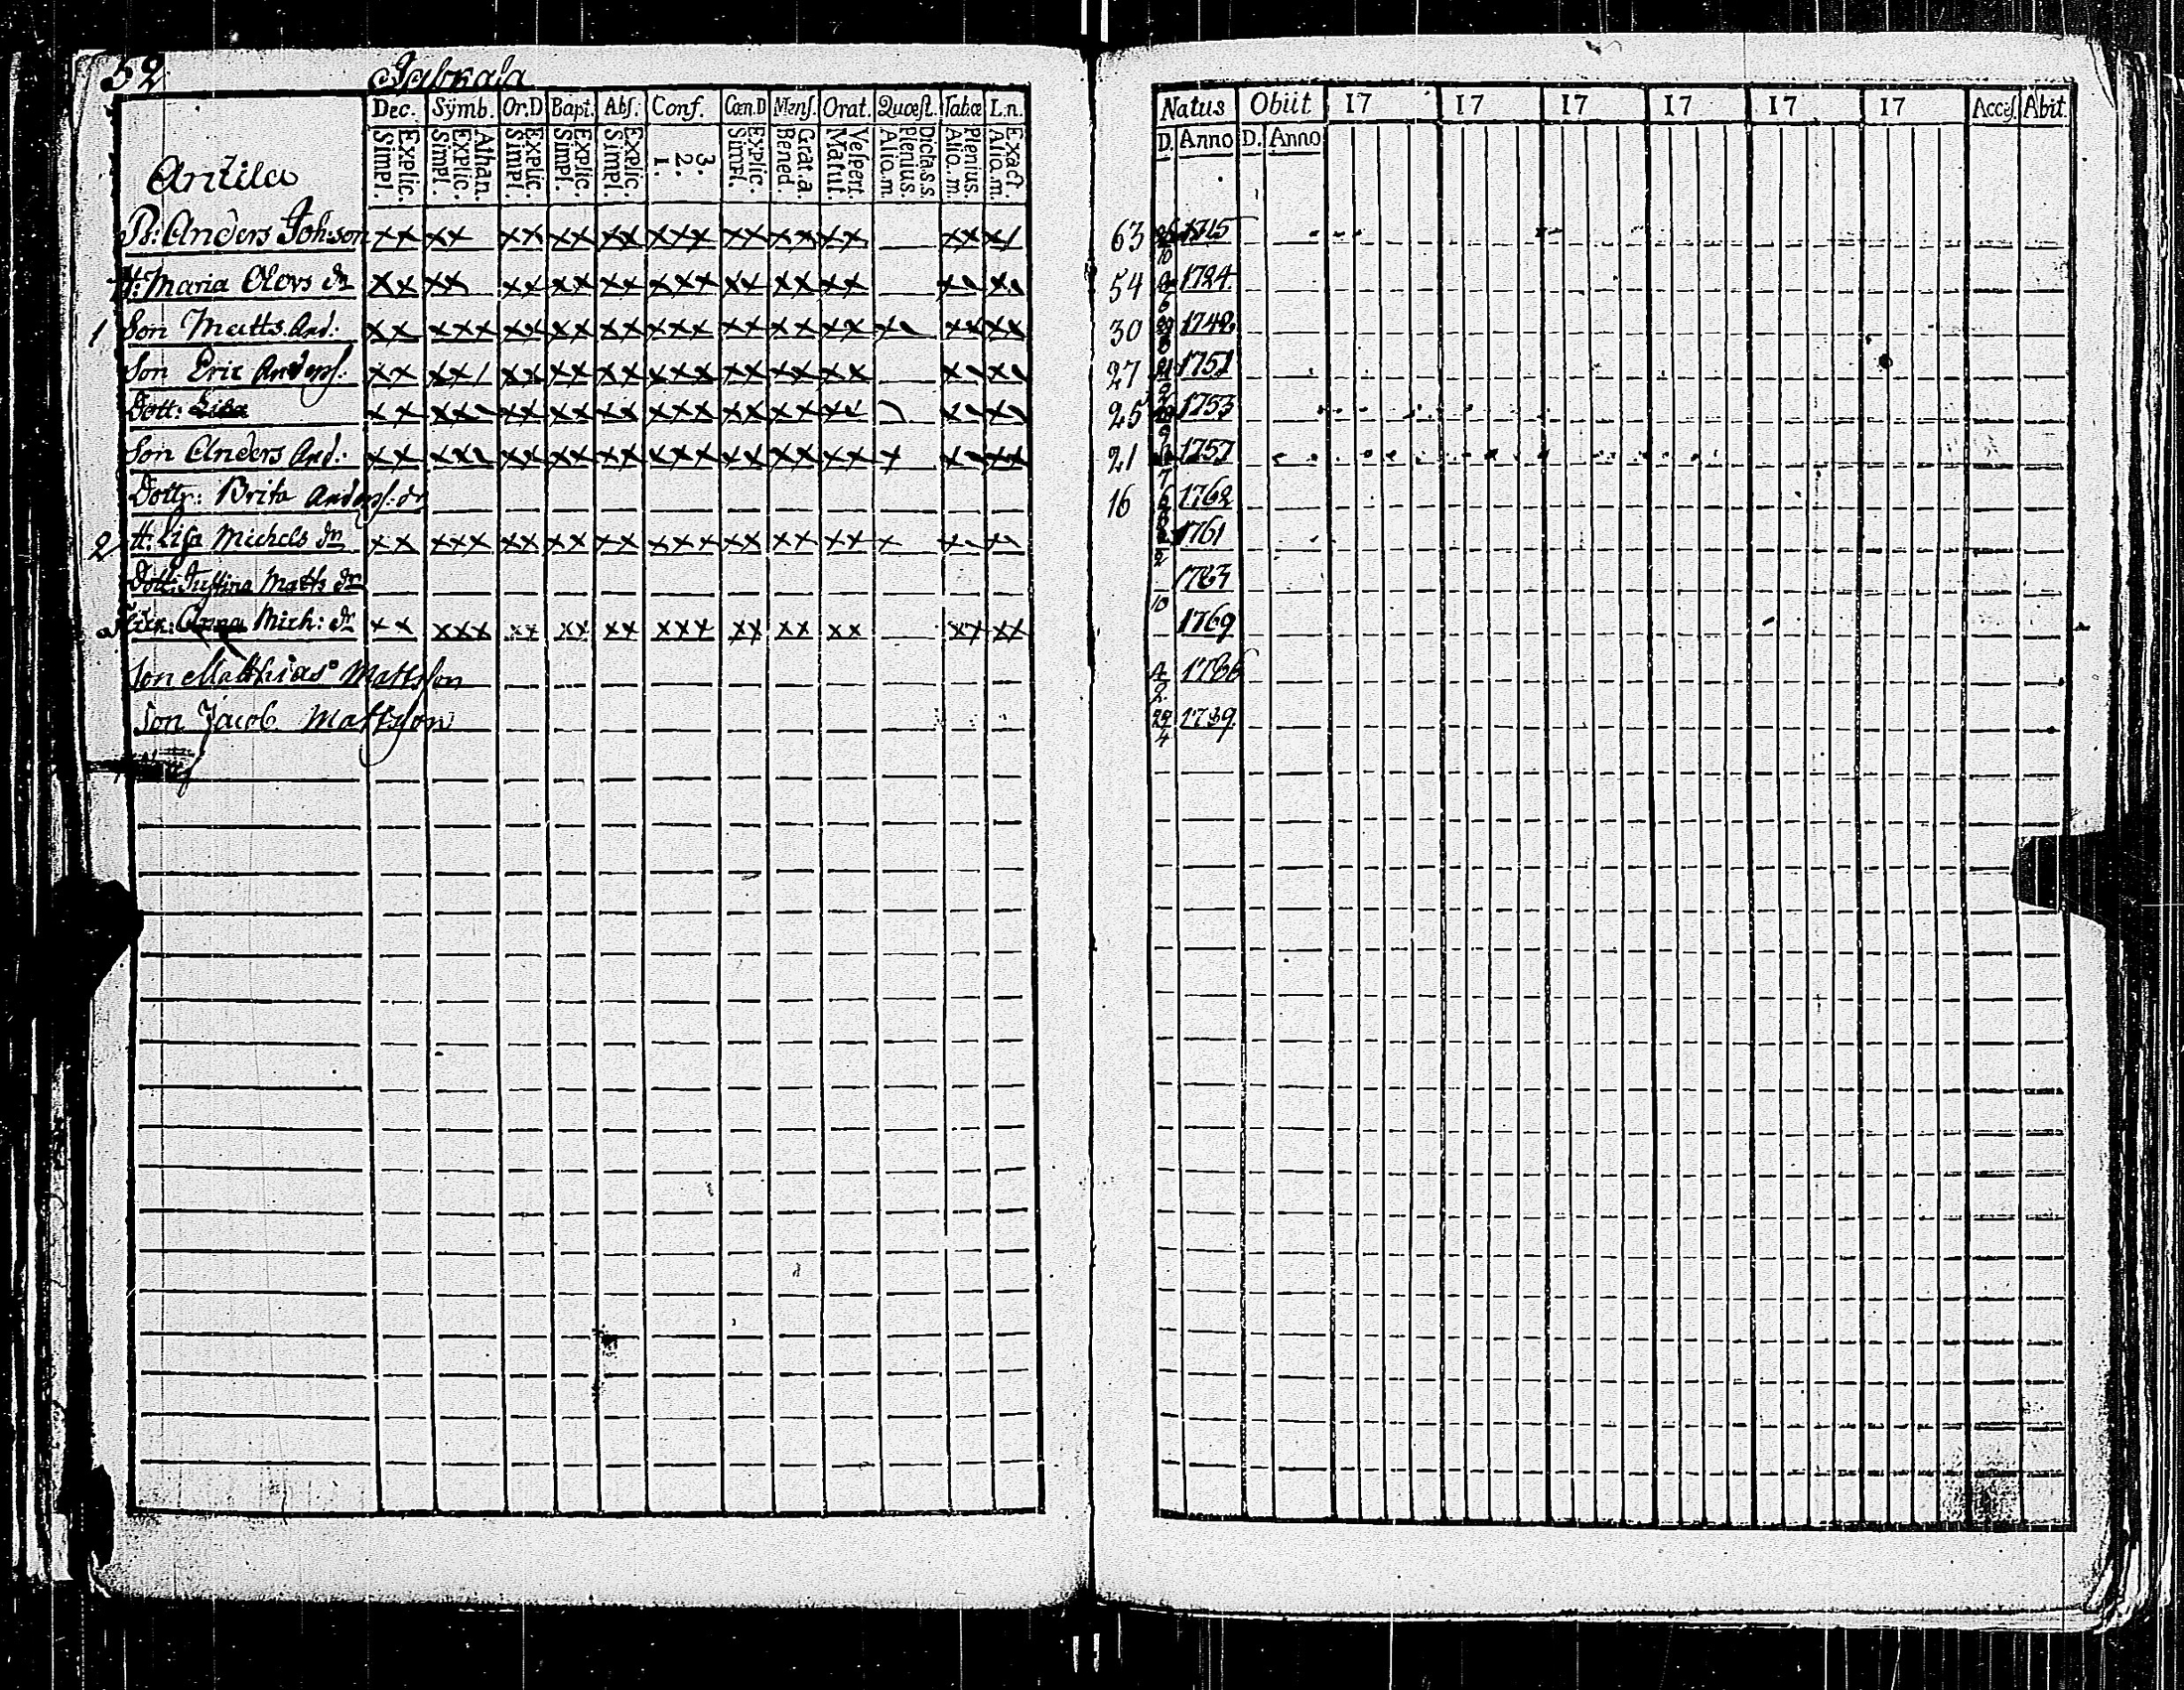 52
Dec. Symb. Or.D Bapt. Abs. Conf. Cœn.D Mens. Orat. Quæst. Tabœ L.n.
Simpl. Explic. Simpl. Explic. Athan. Simpl. Explic. Simpl. Explic. Simpl. Explic. 1. 2. 3. Simpl. Explic. Bened. Grat.a. Matut. Vespert. Alio.m. Plenius. Dicta.s.s. Alio.m. Plenius. Alio.m. Exact.
Natus Obiit 17 17 17 17 17 17 Acces. Abit.
D. Anno D. Anno
Antila
Anders Joh:son xx xx xx xx xx xxx xx xx xx xx 63 1715
H: Maria Olovs dr xx xx xx xx xx xxx xx xx xx 54 1724
1 Son Matts And: xx xxx xx xx xx xxx xx xx xx xx xx 30 1742
Son Eric Anders: xx xx/ xx xx xx xxx xx xx xx 27 1751
Dott: Lisa xx xx xx xx xxx xx xx 25 1753
Son Anders And: xx xx xx xx xxx xx xx xx x xx 21 1757
Dottr: Brita Anders: dr 16 1762
2 H: Lisa Michels dr xx xxx xx xx xx xxx xx xx xx x 1761
Dott: Justina Matts dr
Anna Mich: dr xx xxx xx xx xx xxx xx xx xx xx xx 1769
Son Matthias Mattsson
Son Jacob Mattsson 22/4